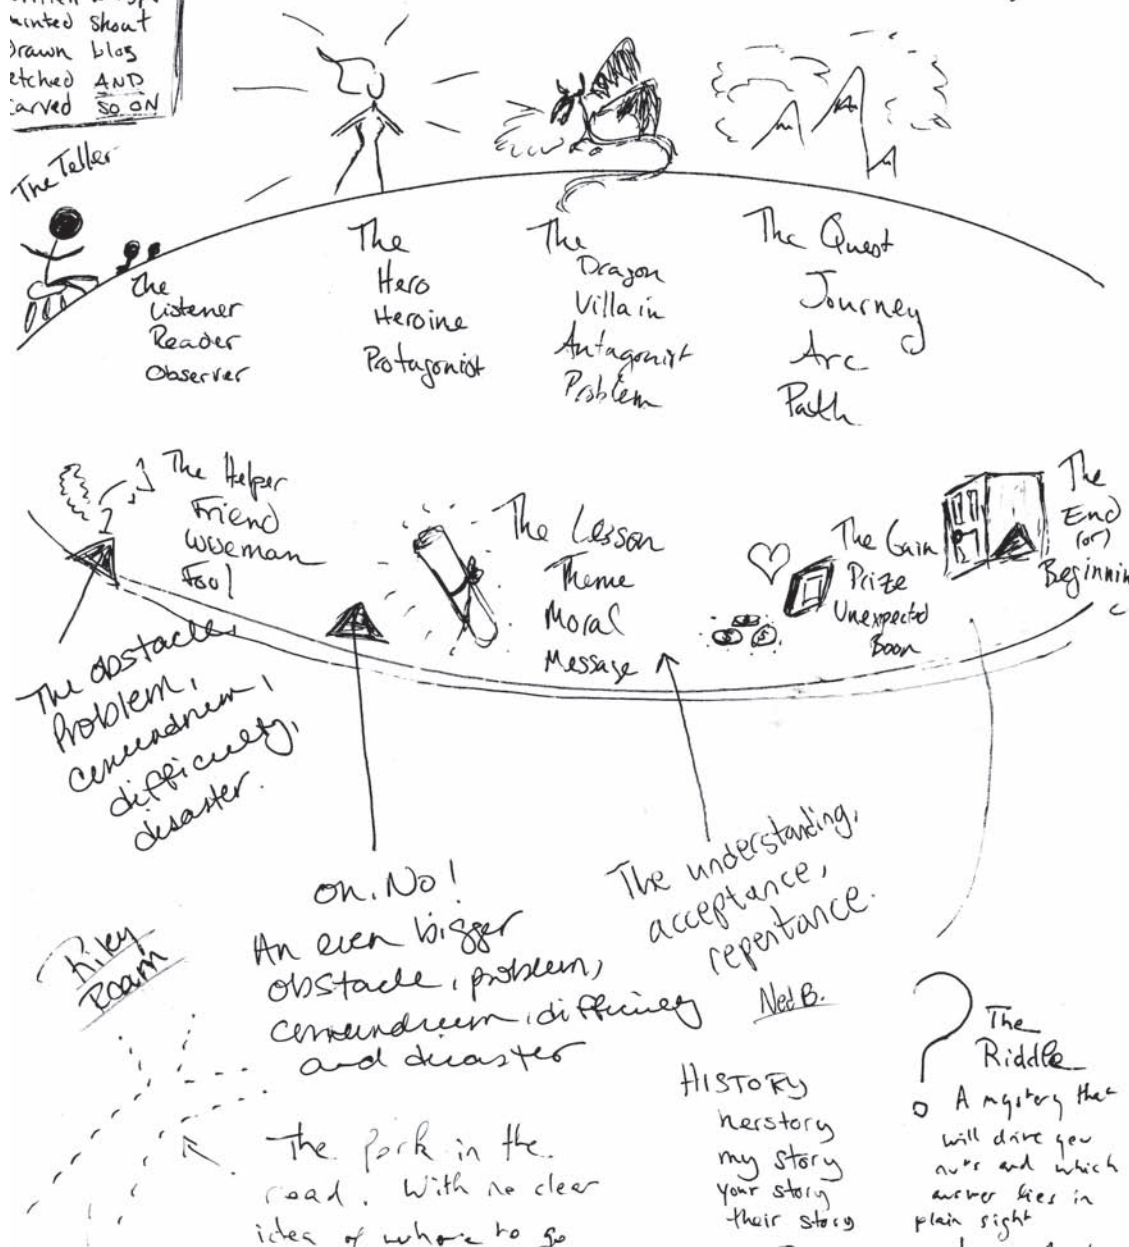 painted shout
Drawn blog
etched AND
carved SO ON
The Teller
The
Listener
Reader
Observer
The
Hero
Heroine
Protagonist
The
Dragon
Villain
Antagonist
Problem
The Quest
Journey
Arc
Path
The Helper
Friend
Wiseman
Fool
The Lesson
Theme
Moral
Message
The Gain
Prize
Unexpected
Boon
The
End
(or)
Beginnin
The obstacle,
Problem,
conundrum,
difficulty,
disaster.
Oh, No!
An even bigger
obstacle, problem,
conundrum, difficulty
and disaster
The understanding,
acceptance,
repentance.
Ned B.
Riley
Roam
The fork in the
road. With no clear
idea of where to go
HISTORY
herstory
my story
your story
their story
The
Riddle
A mystery that
will drive you
nuts and which
answer lies in
plain sight